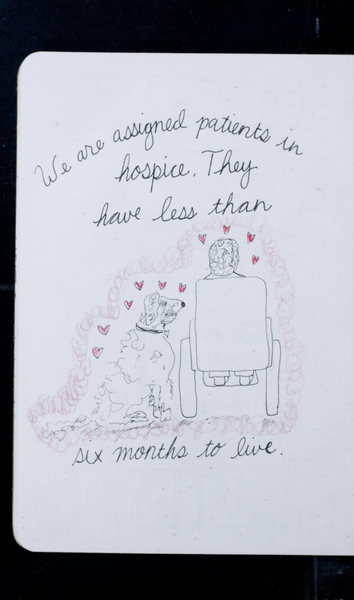 We are assigned patients in
hospice. They
have less than
six months to live.